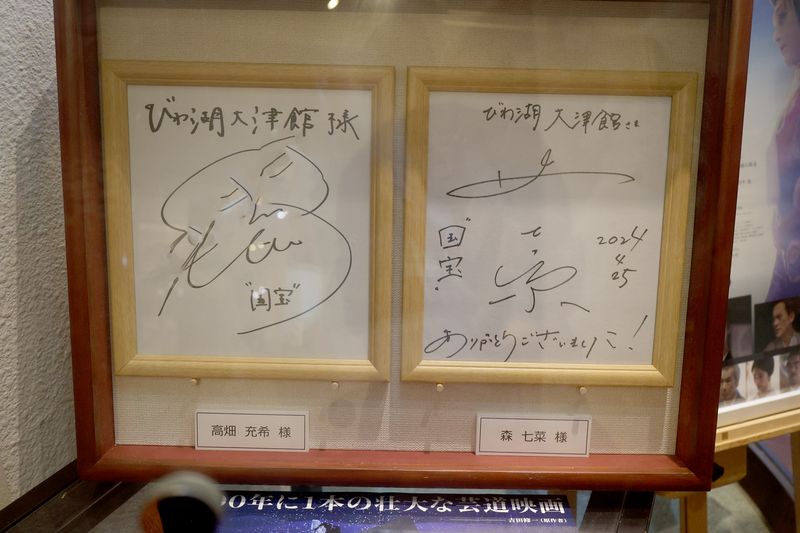 びわ湖大津館様
"国宝"
高畑 充希 様
びわ湖 大津館さま
七
菜
"国宝"
2024
4
25
ありがとうございました!
森 七菜 様
00年に1本の壮大な芸道映画
吉田修一(原作者)